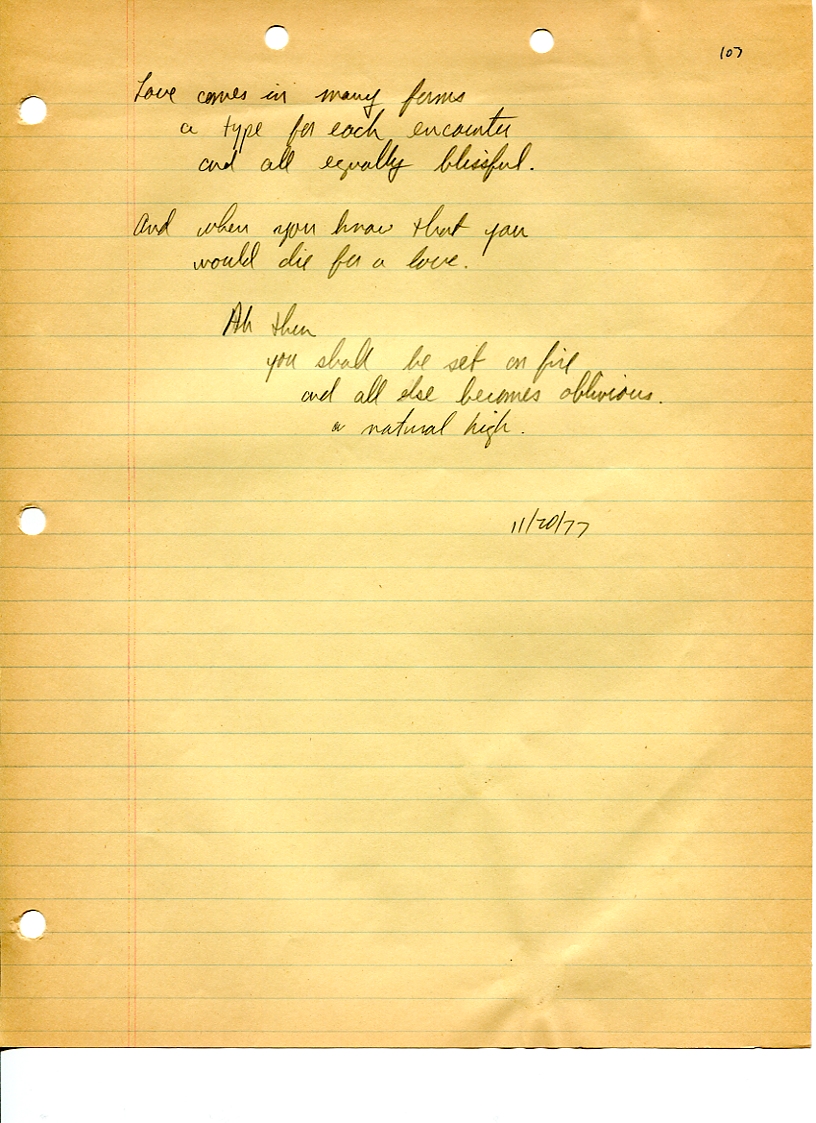 107
Love comes in many forms
a type for each encounter
and all equally blissful.
And when you know that you
would die for a love.
Ah then
you shall be set on fire
and all else becomes oblivious.
a natural high.
11/20/77